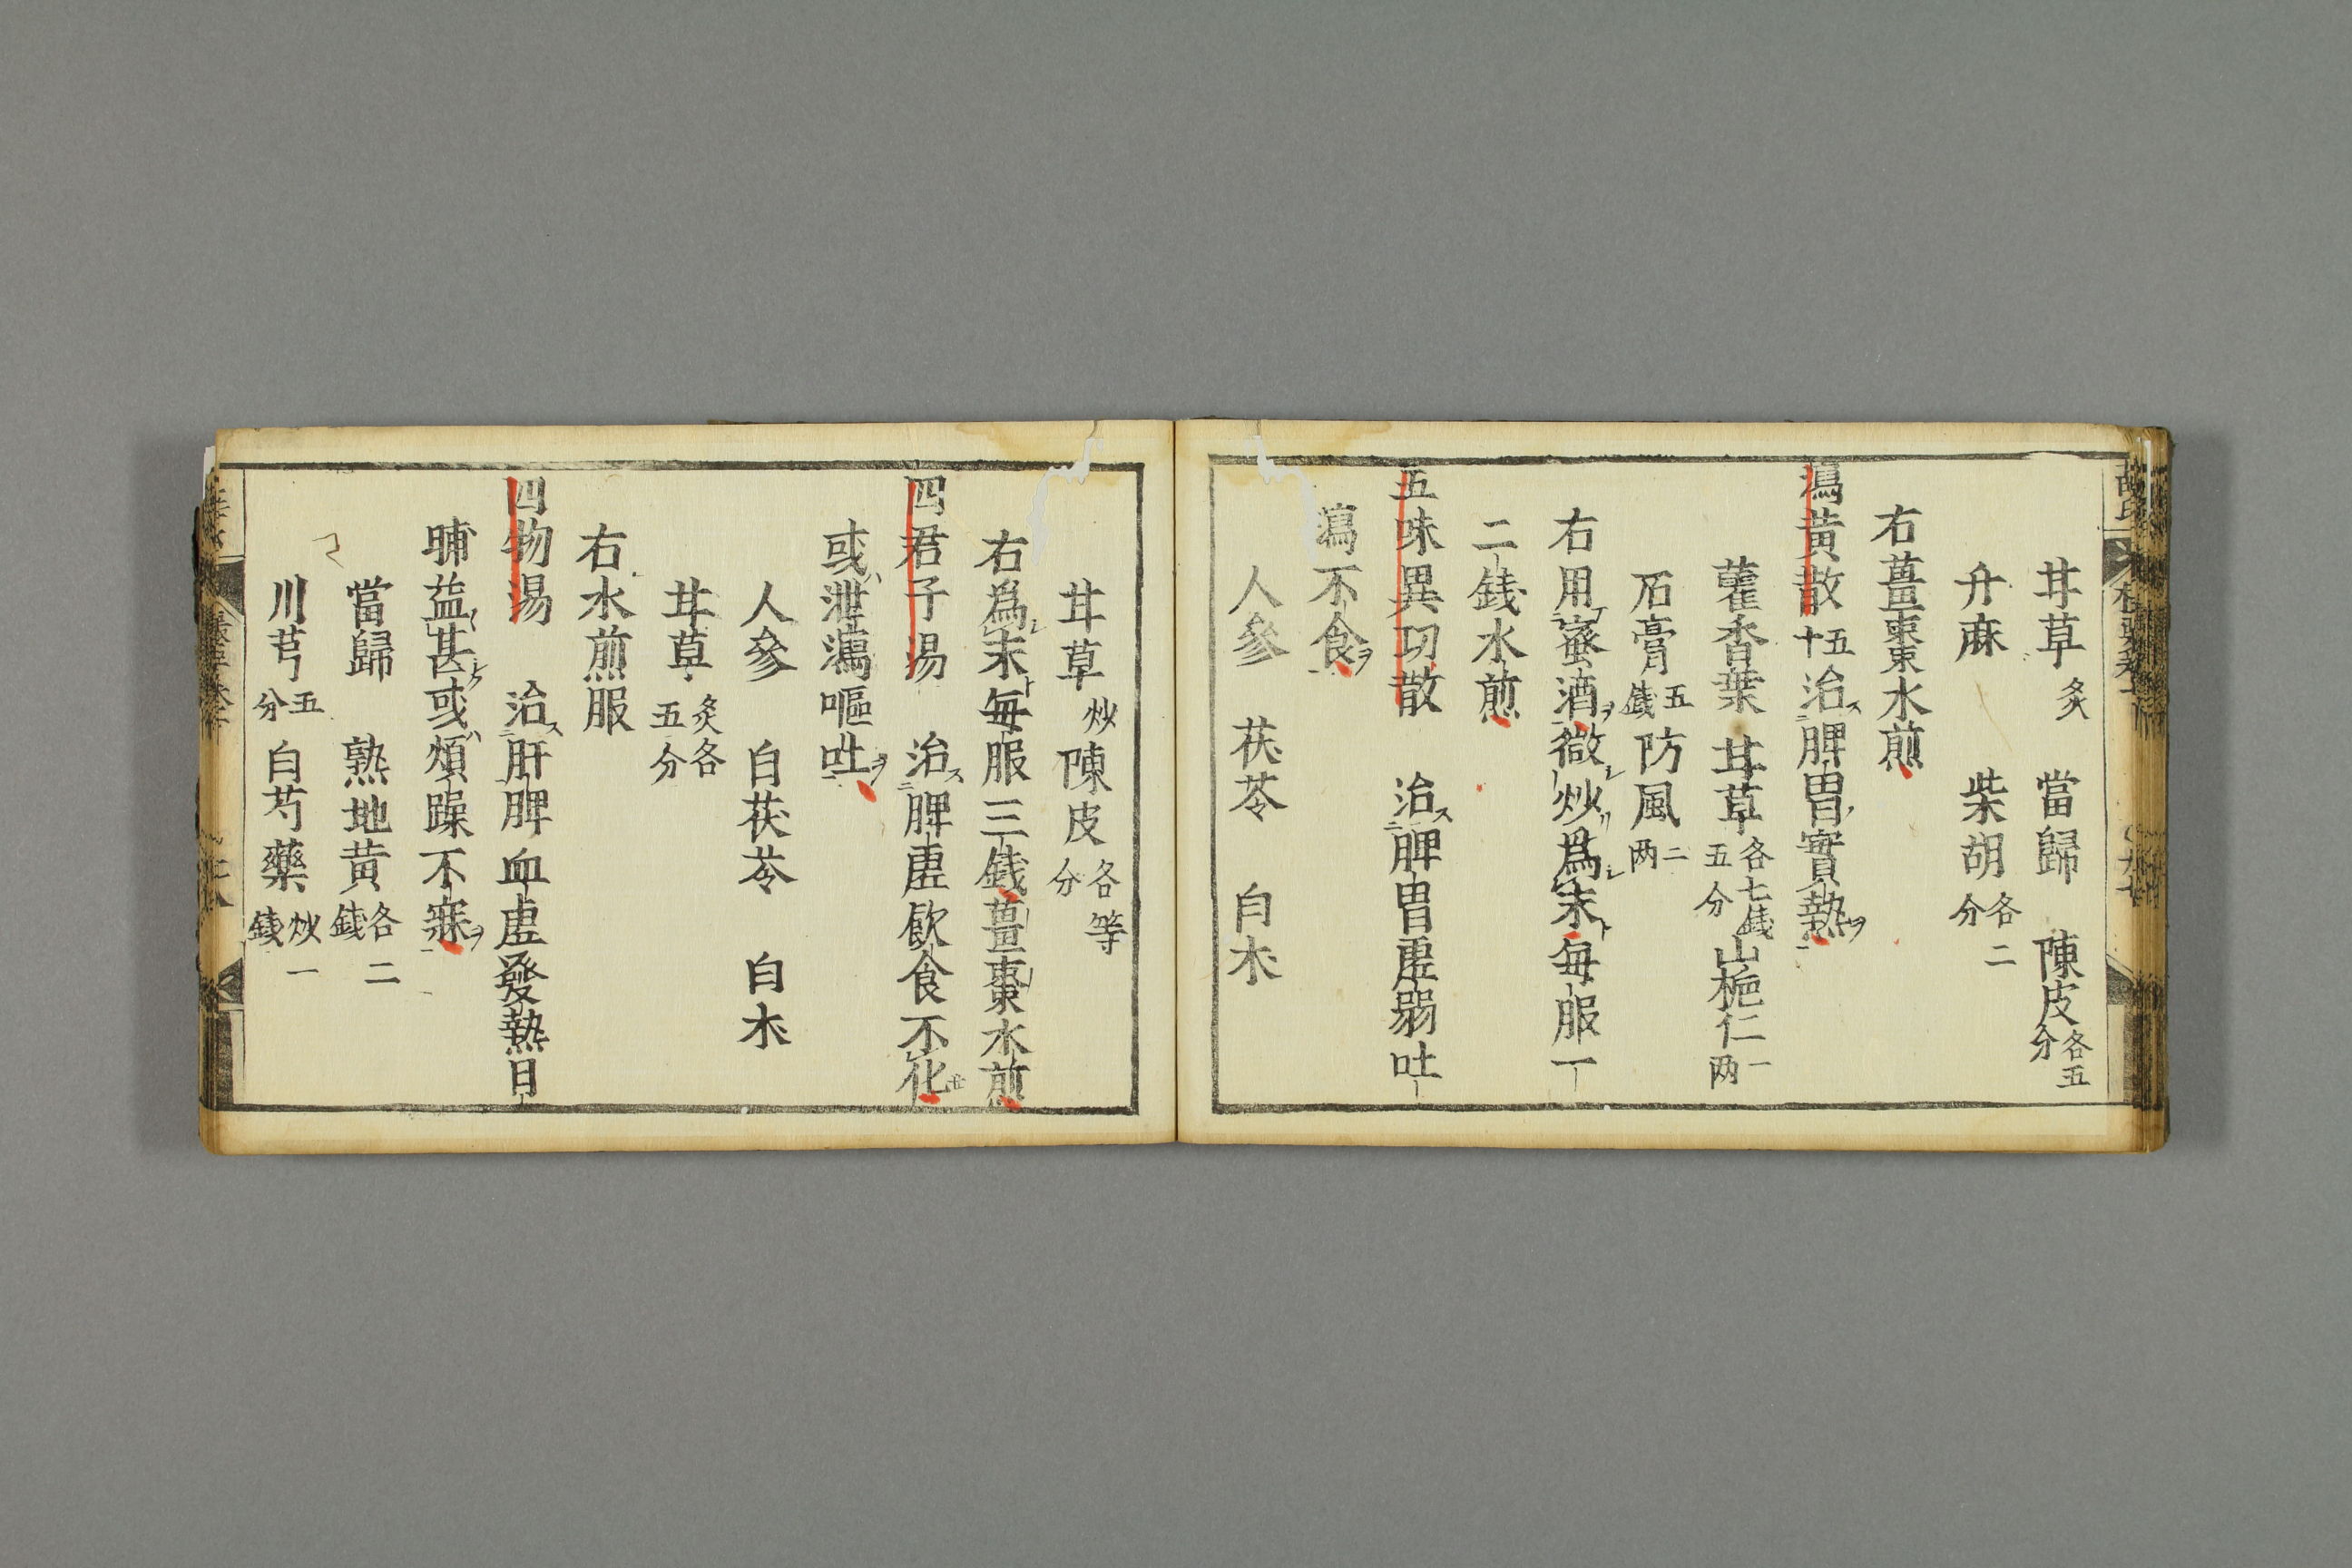 甘草炙　當歸　陳皮各五分
升麻　柴胡各二分
右薑棗水煎
瀉黄散五十　治脾胃實熱
藿香葉　甘草各七錢五分　山梔仁一两
石膏五錢　防風二两
右用蜜酒微炒爲末毎服一
二錢水煎
五味異功散　治脾胃虛弱吐
瀉不食
人參　茯苓　白朮
甘草炒　陳皮各等分
右爲末毎服三錢薑棗水煎
四君子湯　治脾虛飲食不化
或泄瀉嘔吐
人參　白茯苓　白朮
甘草炙各五分
右水煎服
四物湯　治肝脾血虛發熱日
晡益甚或煩躁不寐
當歸　熟地黄各二錢
川芎五分　白芍藥炒一錢